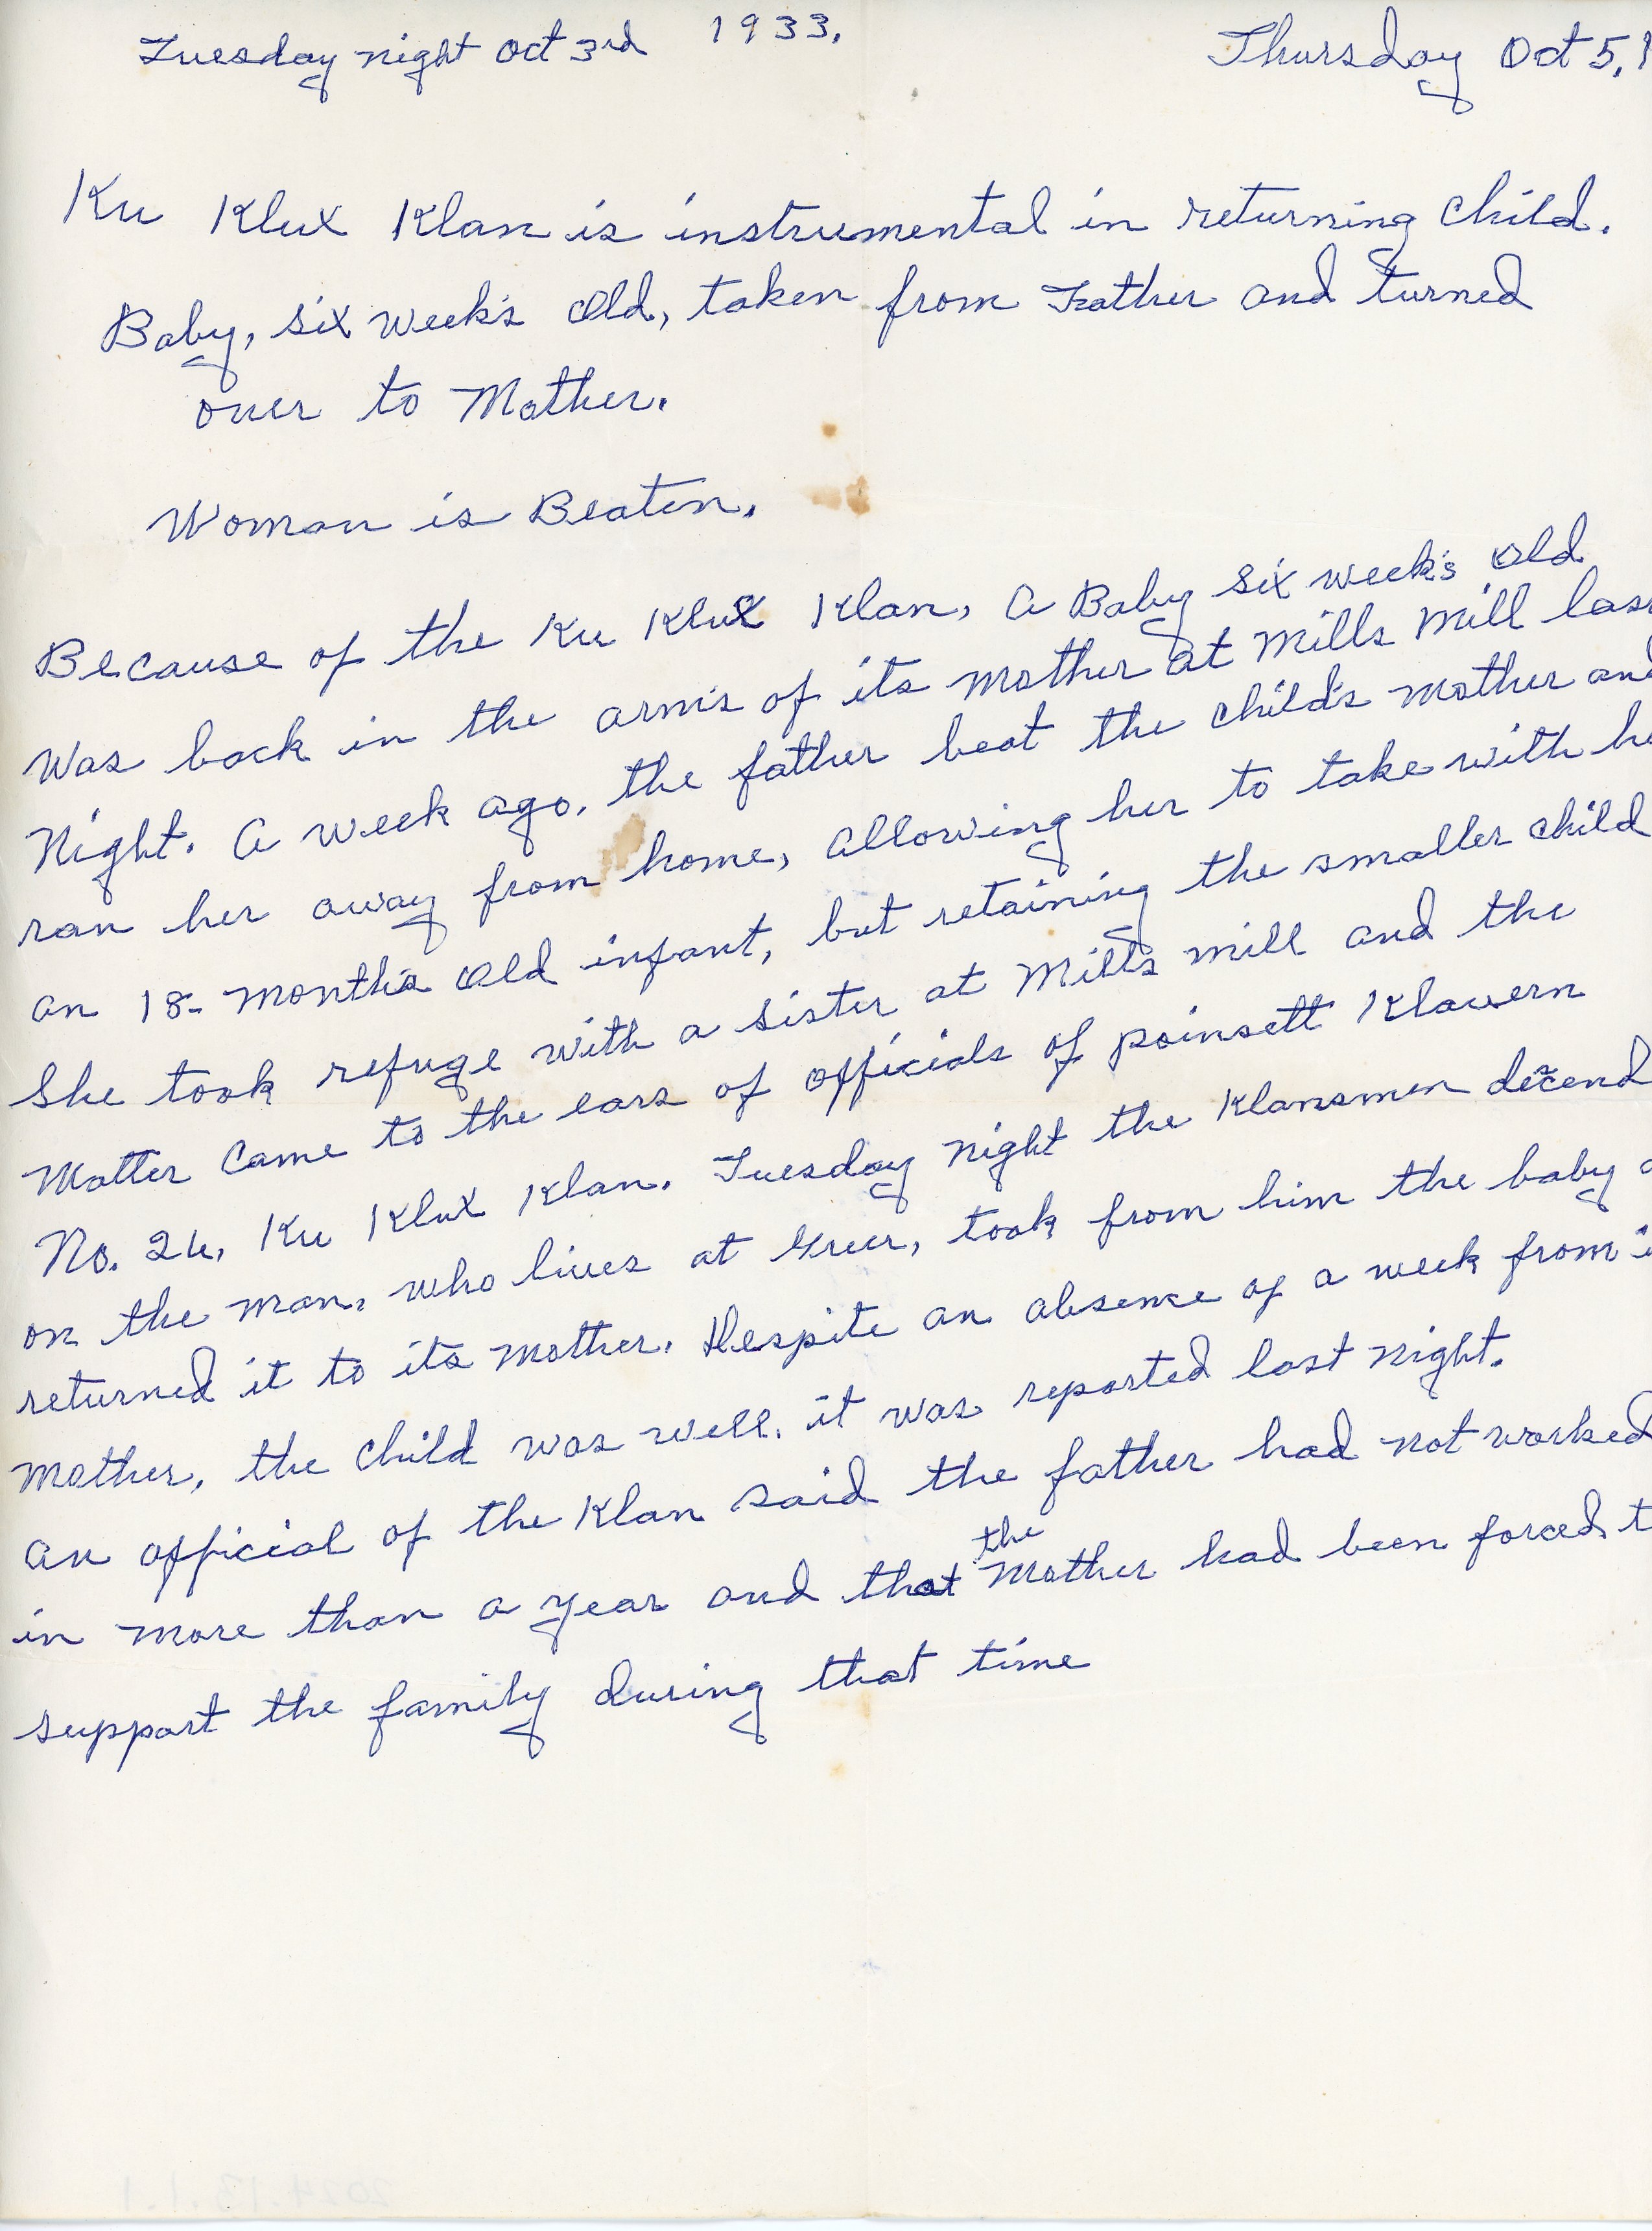 Tuesday night Oct 3rd 1933. Thursday Oct 5, 1
Ku Klux Klan is instrumental in returning child.
Baby, six week's Old, taken from Father and turned
over to Mother.
Woman is Beaten.
Because of the Ku Klux Klan, A Baby six week's old
Was back in the arm's of its mother at Mills Mill las
Night. A week ago, the father beat the child's mother and
ran her away from home, allowing her to take with he
an 18-month's Old infant, but retaining the smaller child
She took refuge with a sister at Mills mill and the
Matter Came to the ears of officials of poinsett Klavern
No. 24, Ku Klux Klan. Tuesday night the Klansmen decend
on the man, who lives at Greer, took from him the baby a
returned it to its mother. Despite an absence of a week from i
mother, the child was well, it was reported last night.
an official of the Klan said the father had not worked
in more than a year and that the Mother had been forced t
support the family during that time
2024.13.1.1